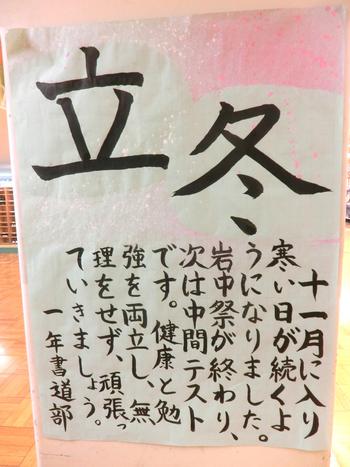 立冬
十一月に入り
寒い日が続くよ
うになりました。
岩中祭が終わり、
次は中間テスト
です。健康と勉
強を両立し、無
理をせず、頑張っ
ていきましょう。
一年書道部